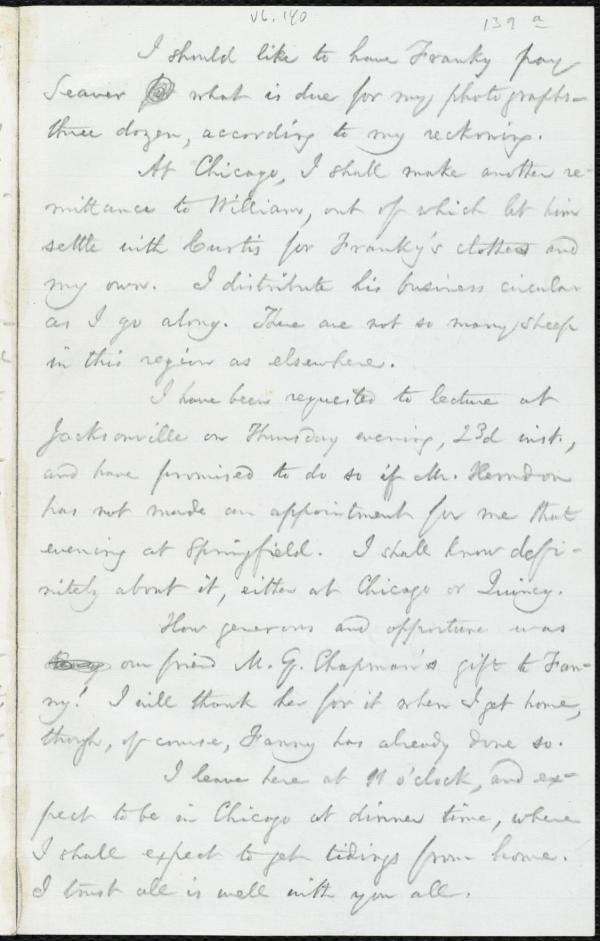 V6. 140
139 a
I should like to have Franky pay
Seaver what is due for my photographs—
three dozen, according to my reckoning.
At Chicago, I shall make another re-
mittance to William, out of which let him
settle with Curtis for Franky's clothes and
my own. I distribute his business circular
as I go along. There are not so many sheep
in this region as elsewhere.
I have been requested to lecture at
Jacksonville on Thursday evening, 23d inst.,
and have promised to do so if Mr. Herndon
has not made an appointment for me that
evening at Springfield. I shall know defi-
nitely about it, either at Chicago or Quincy.
How generous and opportune was
our friend M. G. Chapman's gift to Fan-
ny! I will thank her for it when I get home,
though, of course, Fanny has already done so.
I leave here at 11 o'clock, and ex-
pect to be in Chicago at dinner time, where
I shall expect to get tidings from home.
I trust all is well with you all.